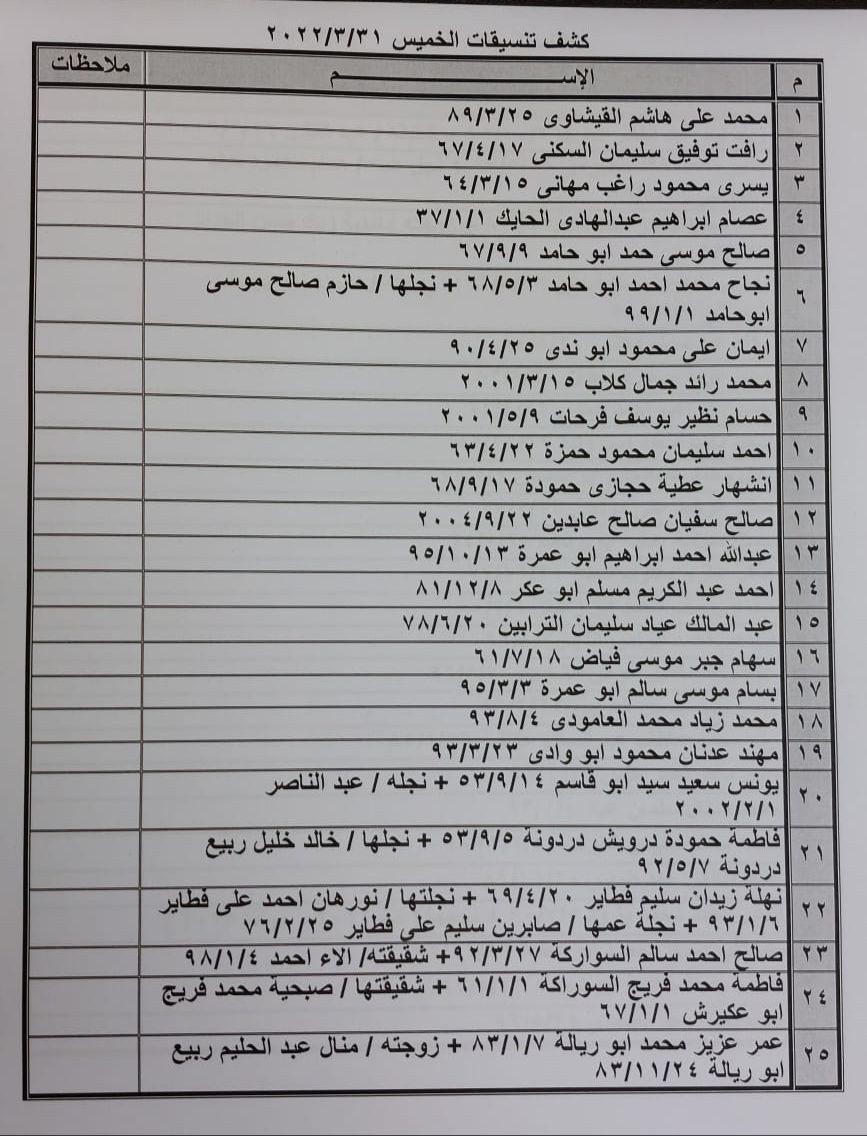 كشف تنسيقات الخميس ٢٠٢٢/٣/٣١
م الإســـــــــــــــــــــــم ملاحظات
١ محمد على هاشم القيشاوى ٨٩/٣/٢٥
٢ رافت توفيق سليمان السكنى ٦٧/٤/١٧
٣ يسرى محمود راغب مهانى ٦٤/٣/١٥
٤ عصام ابراهيم عبدالهادى الحايك ٣٧/١/١
٥ صالح موسى حمد ابو حامد ٦٧/٩/٩
٦ نجاح محمد احمد ابو حامد ٦٨/٥/٣ + نجلها / حازم صالح موسى
ابوحامد ٩٩/١/١
٧ ايمان على محمود ابو ندى ٩٠/٤/٢٥
٨ محمد رائد جمال كلاب ٢٠٠١/٣/١٥
٩ حسام نظير يوسف فرحات ٢٠٠١/٥/٩
١٠ احمد سليمان محمود حمزة ٦٣/٤/٢٢
١١ انشهار عطية حجازى حمودة ٦٨/٩/١٧
١٢ صالح سفيان صالح عابدين ٢٠٠٤/٩/٢٢
١٣ عبدالله احمد ابراهيم ابو عمرة ٩٥/١٠/١٣
١٤ احمد عبد الكريم مسلم ابو عكر ٨١/١٢/٨
١٥ عبد المالك عياد سليمان الترابين ٧٨/٦/٢٠
١٦ سهام جبر موسى فياض ٦١/٧/١٨
١٧ بسام موسى سالم ابو عمرة ٩٥/٣/٣
١٨ محمد زياد محمد العامودى ٩٣/٨/٤
١٩ مهند عدنان محمود ابو وادى ٩٣/٣/٢٣
٢٠ يونس سعيد سيد ابو قاسم ٥٣/٩/١٤ + نجله / عبد الناصر
٢٠٠٢/٢/١
٢١ فاطمة حمودة درويش دردونة ٥٣/٩/٥ + نجلها / خالد خليل ربيع
دردونة ٩٢/٥/٧
٢٢ نهلة زيدان سليم فطاير ٦٩/٤/٢٠ + نجلتها / نورهان احمد على فطاير
٩٣/١/٦ + نجلة عمها / صابرين سليم على فطاير ٧٦/٢/٢٥
٢٣ صالح احمد سالم السواركة ٩٢/٣/٢٧+ شقيقته/ الاء احمد ٩٨/١/٤
٢٤ فاطمة محمد فريج السوراكة ٦١/١/١ + شقيقتها / صبحية محمد فريج
ابو عكيرش ٦٧/١/١
٢٥ عمر عزيز محمد ابو ريالة ٨٣/١/٧ + زوجته / منال عبد الحليم ربيع
ابو ريالة ٨٣/١١/٢٤